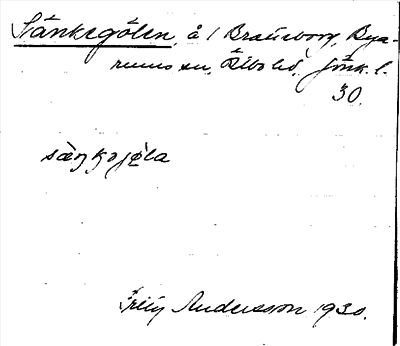 Sänkegölen, å 1 Brautorp, Bya-
rums sn, Östbo hd, Jönk. l.
30.
sæ̀ŋkəjø̀la
Andersson 1930.